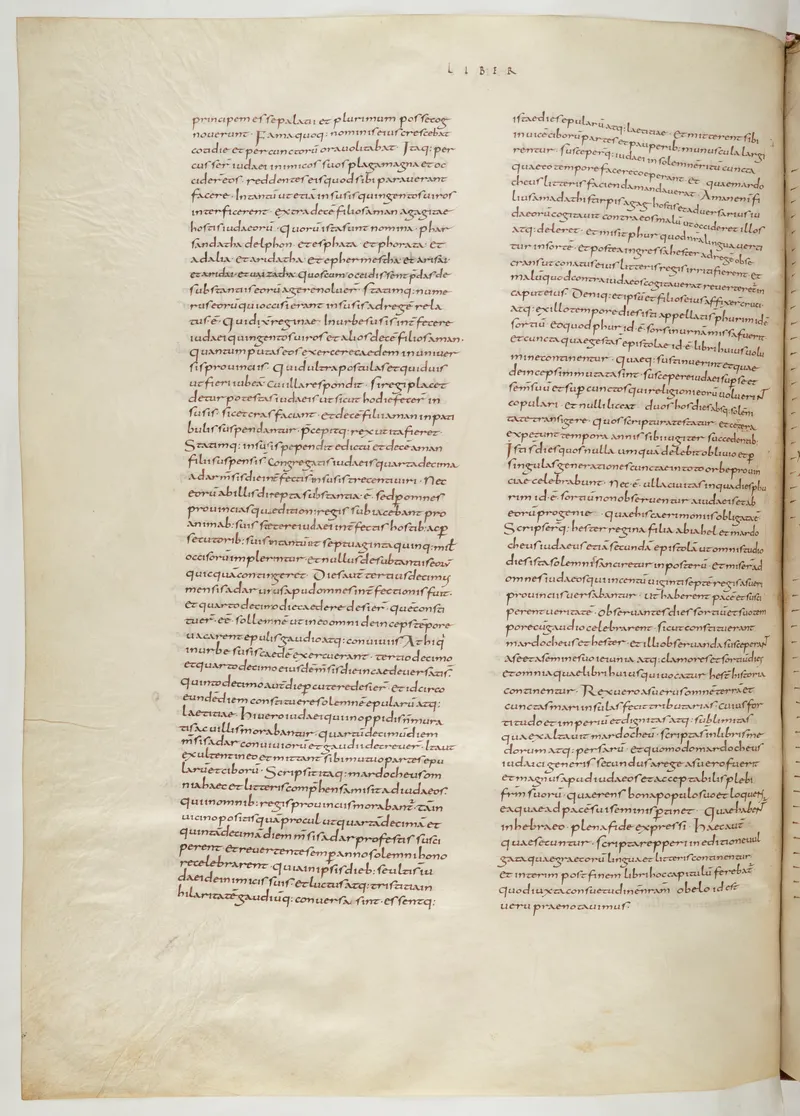 LIBER
principem esse palatii et plurimum posse cog
noverant · Fama quoq: nominis eius crescebat
cotidie et per cunctorū ora volitabat · Itaq: per
cusser̄ iudaei inimicos suos plaga magna et oc
cider̄ eos · reddentes eis quod sibi paraverant
facere · Intantū ut etiā in susis quingentos viros
interficerent · extra decē filios aman agagitae
hostis iudaeorū · Quorū ista sunt nomina · phar
sandatha delphon · et esphata · et phorata · et
adalia · et aridatha · et ephermestha · et arisai ·
et aridai · et vaizatha · quos cum occidissent p̄das de
substantiis eorū agere noluer̄ · Statimq: nume
rus eorū qui occisi erant in susis ad regē rela
tus ē · Qui dix̄ reginae · In urbe susis int̄fecere
iudaei quingentos viros et alios decē filios aman ·
quantum putas eos exercere caedem in univer
sis provinciis · Quid ultra postulas et quid vis
ut fieri iubeā · Cui illa respondit · si regi placet
detur potestas iudaeis ut sicut hodie fecer̄ in
susis · sic et cras faciant · et decē filii aman in pati
bulis suspendantur · p̄cepitq: rex ut ita fieret ·
Statimq: in susis pependit edictū et decē aman
filii suspensi s̄ · Congregatis iudaeis quarta decima
adar m̄sis die int̄fecti s̄ in susis trecenti viri · Nec
eorū ab illis direpta substantia ē · sed p omnes
provincias quae dition: regis subiacebant pro
animab: suis stetere iudaei int̄fectis hostib: ac p
secutorib: suis intantū ut septuaginta quinq: mil̄
occisorū implerentur · et nullus de substantiis eorū
quicquā contingeret · Dies aut̄ tertius decimus
mensis adar unus apud omnes int̄fectionis fuit ·
et quarto decimo die caedere desier̄ · quē consti
tuer̄ eē sollemnē ut in eo omni deinceps tēpore
vacarent epulis gaudio atq: conviviis · At hi q
in urbe susis caedē exercuerant · tertio decimo
et quarto decimo eiusdē m̄sis die in caede versati s̄ ·
quinto decimo aut̄ die pcutere desier̄ · et idcirco
eundē diem constituere solemnē epularū atq:
laetitiae · Hi vero iudaei qui in oppidis n̄ muratis
ac villis morabantur · quartū decimū diem
m̄sis adar conviviorū et gaudii decrever̄ · Ita ut
exultent in eo et mittant sibi mutuo partes epu
larū et ciborū · Scripsit itaq: mardocheus om
nia haec et litteris comp̄hensa misit ad iudaeos ·
qui in omnib: regis provinciis morabant̄ · tā in
vicino positis quā procul · ut quartā decimā et
quintā decimā diem m̄sis adar pro festis susci
perent · et revertente semp anno solemni hono
re celebrarent · quia in ipsis dieb: se ulti s̄ iu
daei de inimicis suis · et luctus atq: tristitia in
hilaritatē gaudiūq: conversa sint · essentq:
istae dies epularū atq: laetitiae · et mitterent sibi
invicē ciborū partes et pauperib: munuscula largi
rentur · susceperq: iudaei in solemnē ritū cuncta
quae eo tempore facere coeperant · et quae mardo
cheus litteris facienda mandaverat · Aman enī fi
lius amadathi stirpis agag hostis et adversarius iu
daeorū cogitavit contra eos malū ut occideret illos
atq: deleret · et misit phur quod n̄ra lingua verti
tur in sortē · et postea ingressa hester ad regē obse
crans ut conatus eius litteris regis irriti fierent · et
malū quod contra iudaeos cogitaverat reverteretur in
caput eius · Deniq: et ipsū et filios eius affixer̄ cruci ·
atq: ex illo tempore dies isti appellati s̄ phurim id ē
sortiū · eo quod phur id ē sors in urnā missa fuerit
et cuncta quae gesta s̄ epistolae id ē libri huius volu
mine continentur · quaeq: sustinuerint et quae
deinceps immutata sint · suscepere iudaei sup se et
sem̄ suū et sup cunctos qui religioni eorū voluerint
copulari · ut nulli liceat · duos hos dies absq: solem̄
tate transigere · quos scriptura testatur · et certa
expetunt tempora annis sibi iugiter succedentib: ·
Isti s̄ dies quos nulla umquā delebit oblivio et p
singulas generationes cunctae in toto orbe provin
ciae celebrabunt · Nec ē ulla civitas in qua dies phu
rim id ē sortiū non observentur a iudaeis et ab
eorū progenie · quae his caerimoniis obligata ē
Scripserq: hester regina filia abiahel et mardo
cheus iudaeus etiā secundā epistolā ut omni studio
dies ista solemnis sanciretur in posterū · et miser̄ ad
omnes iudaeos qui in centū viginti septē regis asueri
provinciis versabantur · ut haberent pacē et susci
perent veritatē · observantes dies sortiū et suo tem
pore cū gaudio celebrarent · sicut constituerant
mardocheus et hester · et illi observanda susceperant
a se et a semine suo ieiunia atq: clamores et sortiū dies
et omnia quae libri huius qui vocatur hester historia
continentur · Rex vero asuerus omnē terrā et
cunctas maris insulas fecit tributarias cuius for
titudo et imperiū et dignitas atq: sublimitas
qua exaltavit mardocheū · scripta s̄ in libris me
dorum atq: persarū · et quomodo mardocheus
iudaici generis secundus a rege asuero fuerit
et magnus apud iudaeos et acceptabilis plebi
fr̄m suorū · quaerens bona populo suo et loquens
ea quae ad pacē suseminis p̄tinet · Quae habent̄
in hebraeo · plena fide expressi · Haec aut̄
quae secuntur · scripta repperi in editione vul
gata quae graecorū lingua et litteris continentur
et interim post finem libri hoc capitulū ferebat̄
quod iuxta consuetudinē nr̄am obelo id est
veru praenotavimus ·